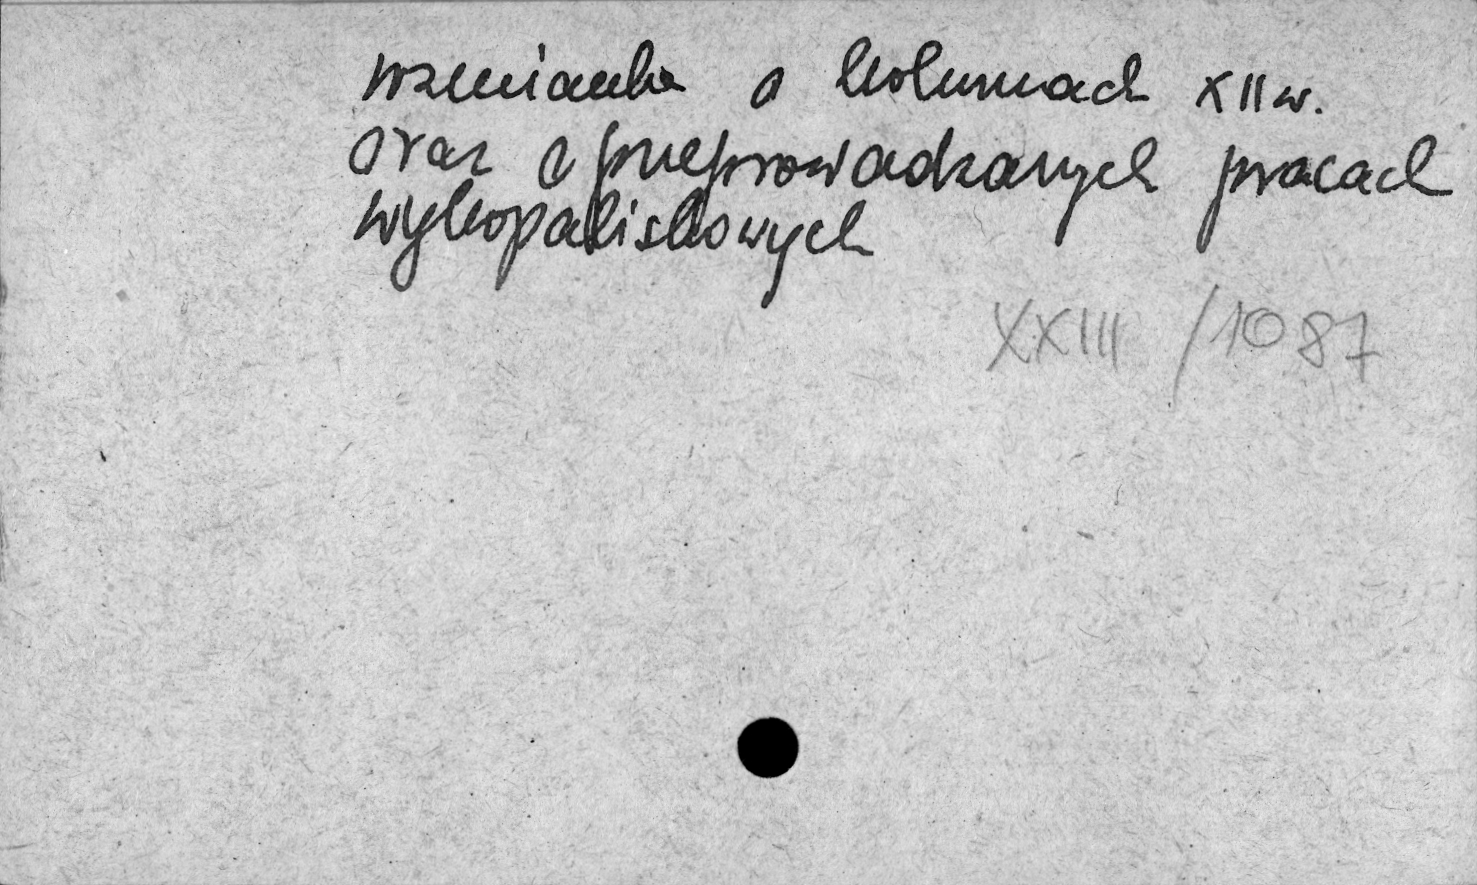 wzmianka o kolumnach XII w.
oraz o przeprowadzanych pracach
wykopaliskowych
XXIII / 1087